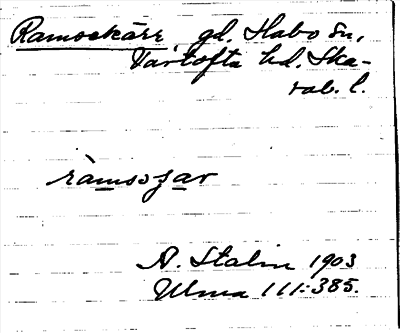 Ramsekärr, gd. Habo sn,
Vartofta hd. Ska-
rab. l.
ràmsɔʒar
A. Stalin 1903
Ulma 111:385.